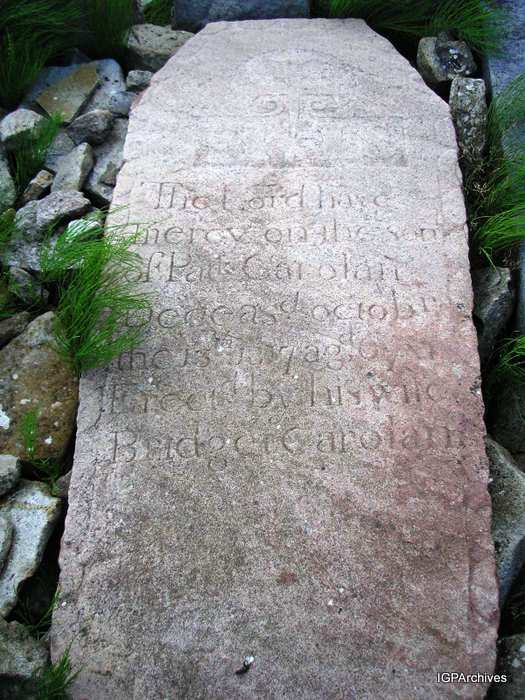 The Lord have
mercy on the Soul
of Patk Carolan
Deceasd octobr
the 13th
Erectd by his wife
Bridget Carolan
IGPArchives